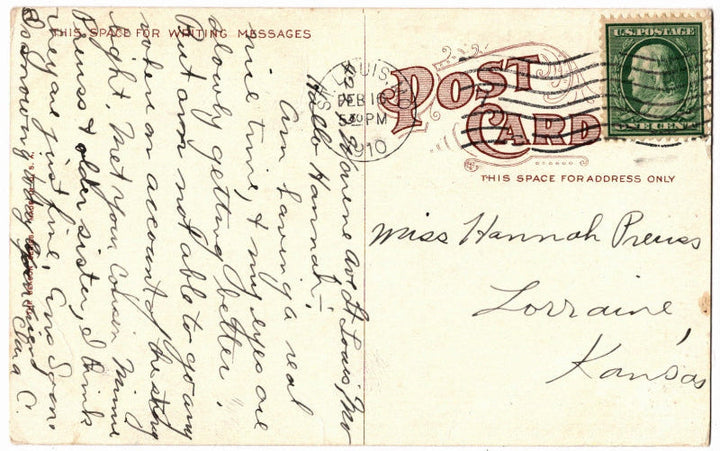 THIS SPACE FOR WRITING MESSAGES
POST
CARD
THIS SPACE FOR ADDRESS ONLY
ST. LOUIS
FEB 16
530 PM
1910
U.S. POSTAGE
ONE CENT
Miss Hannah Preuss
Lorraine,
Kansas
Ave St Louis, Mo
Hello Hannah:—
Am having a real
nice time, & my eyes are
slowly getting better.
But am not able to go any
where on account of hurting
light. Met your Cousin Minnie
Preuss & older sister, I think
they are just fine. Am Soon
your friend
Clara C.